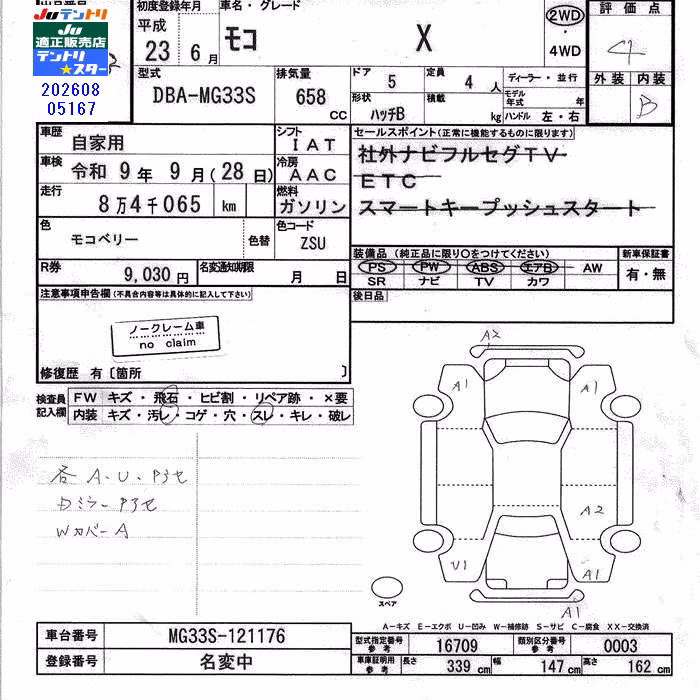 出品番号
Juテントリ
Ju
適正販売店
テントリ
★スター
202608
05167
初度登録年月
平成
23 6月
車名・グレード
モコ X
2WD
・
4WD
評価点
4
外装 内装
B
型式
DBA-MG33S
排気量
658 CC
ドア
5
定員
4 人
ディーラー・並行
形状
ハッチB
積載
kg
モデル年式 年
ハンドル 左・右
車歴
自家用
シフト
IAT
車検
令和 9年 9月(28日)
冷房
AAC
走行
8万4千065 km
燃料
ガソリン
色
モコベリー
色替
色コード
ZSU
R券
9,030円
名変通知期限
月 日
セールスポイント(正常に機能するものに限ります)
社外ナビフルセグTV
ETC
スマートキープッシュスタート
装備品(純正品に限り○をつけてください)
PS PW ABS エアB AW
SR ナビ TV カワ
新車保証書
有・無
後日品
注意事項申告欄(不具合内容等は具体的に記入して下さい)
ノークレーム車
no claim
修復歴 有〔箇所 〕
検査員
記入欄
FW キズ・飛石・ヒビ割・リペア跡・×要
内装 キズ・汚レ・コゲ・穴・スレ・キレ・破レ
各A、U、アラセ
Dミラーアラセ
WカバーA
A2
A1
A1
A2
U1
A1
A1
スペア
A-キズ E-エクボ U-凹み W-補修跡 S-サビ C-腐食 XX-交換済
車台番号
MG33S-121176
登録番号
名変中
型式指定番号
参考
16709
類別区分番号
参考
0003
車庫証明用
参考
長さ
339 cm
幅
147 cm
高さ
162 cm